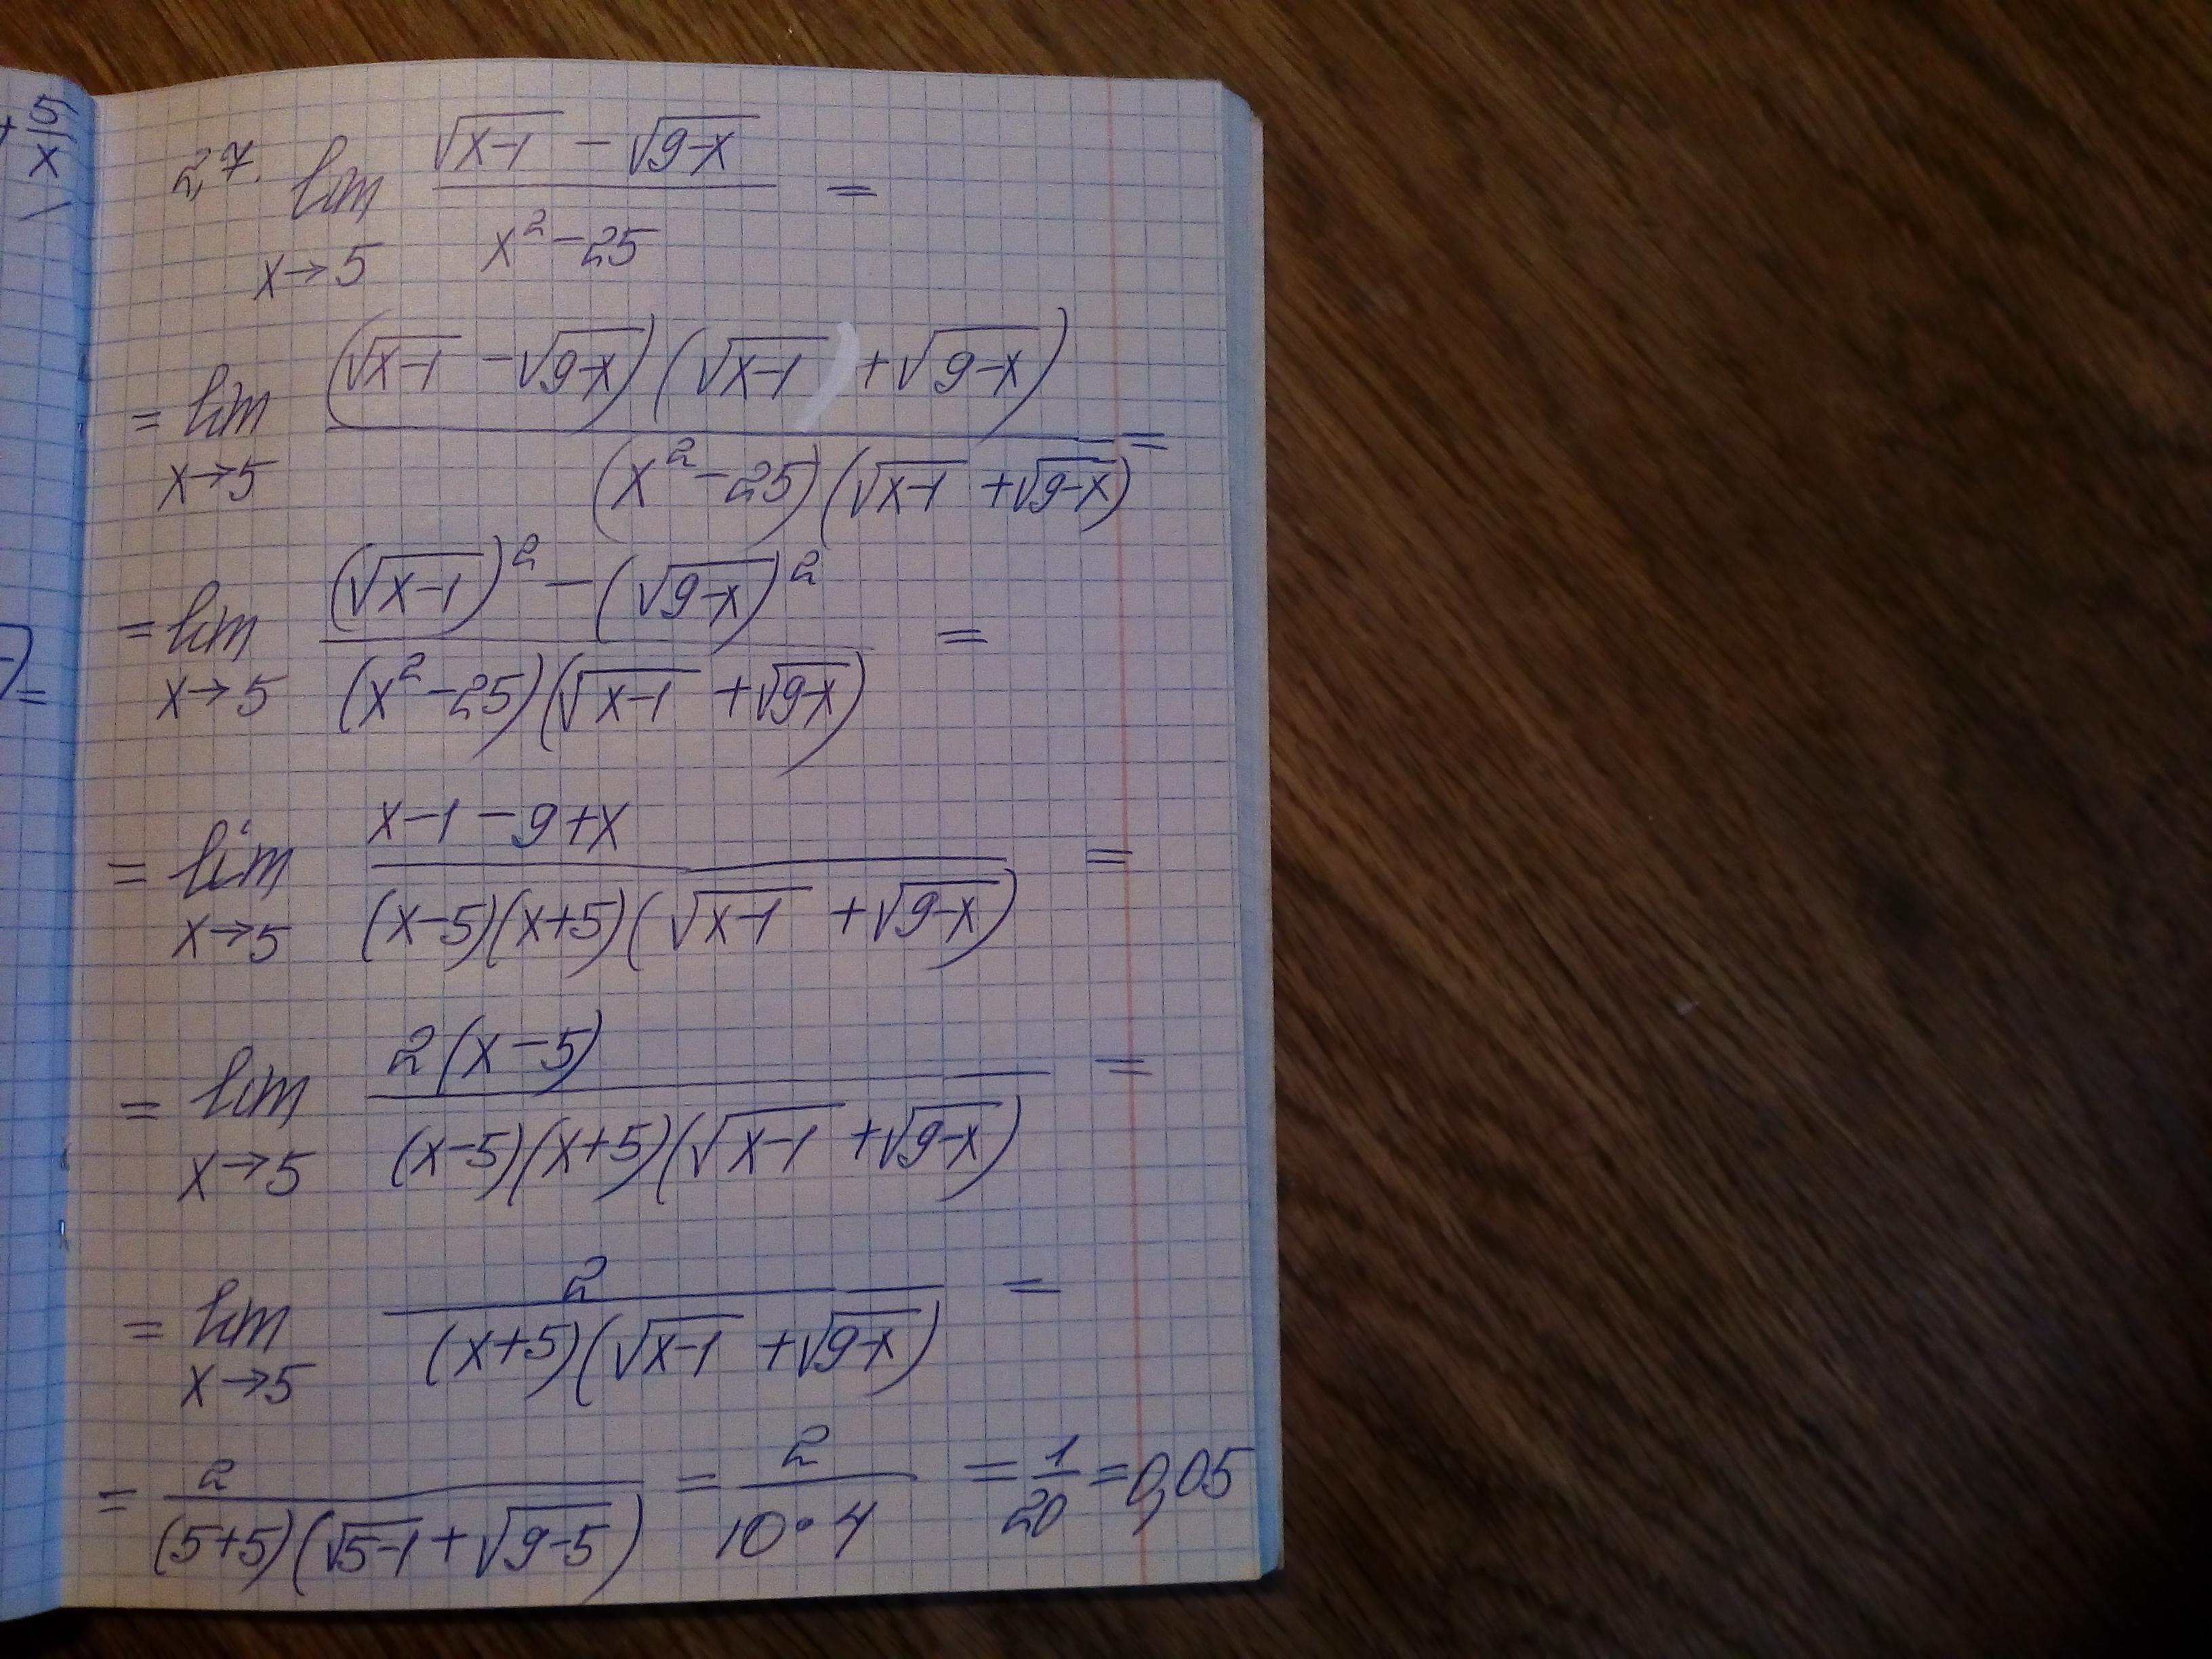 + 5/x
2,7. lim x→5 (√(x-1) - √(9-x)) / (x² - 25) =
= lim x→5 ((√(x-1) - √(9-x))(√(x-1) + √(9-x))) / ((x² - 25)(√(x-1) + √(9-x))) =
= lim x→5 ((√(x-1))² - (√(9-x))²) / ((x² - 25)(√(x-1) + √(9-x))) =
= lim x→5 (x-1-9+x) / ((x-5)(x+5)(√(x-1) + √(9-x))) =
= lim x→5 2(x-5) / ((x-5)(x+5)(√(x-1) + √(9-x))) =
= lim x→5 2 / ((x+5)(√(x-1) + √(9-x))) =
= 2 / ((5+5)(√(5-1) + √(9-5))) = 2 / (10·4) = 1/20 = 0,05